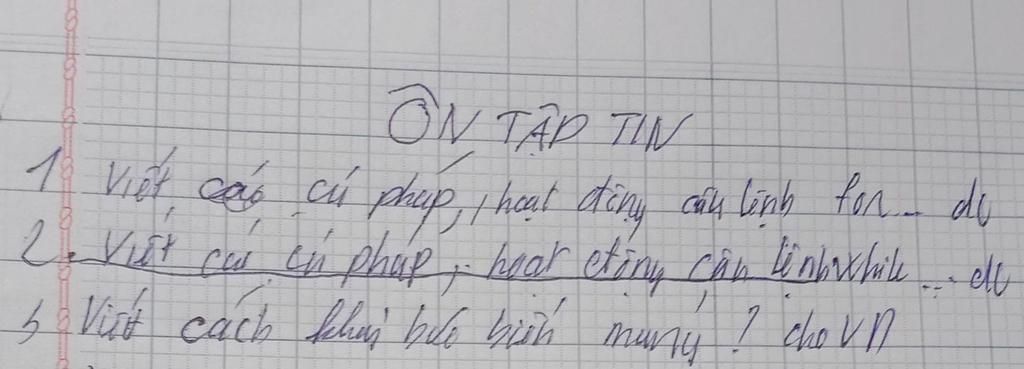 ÔN TẬP TIN
1 Viết các cú pháp, hoạt động câu lệnh for... do
2. Viết các cú pháp, hoạt động câu lệnh while... do
3 Viết cách khai báo biến mảng? cho VD